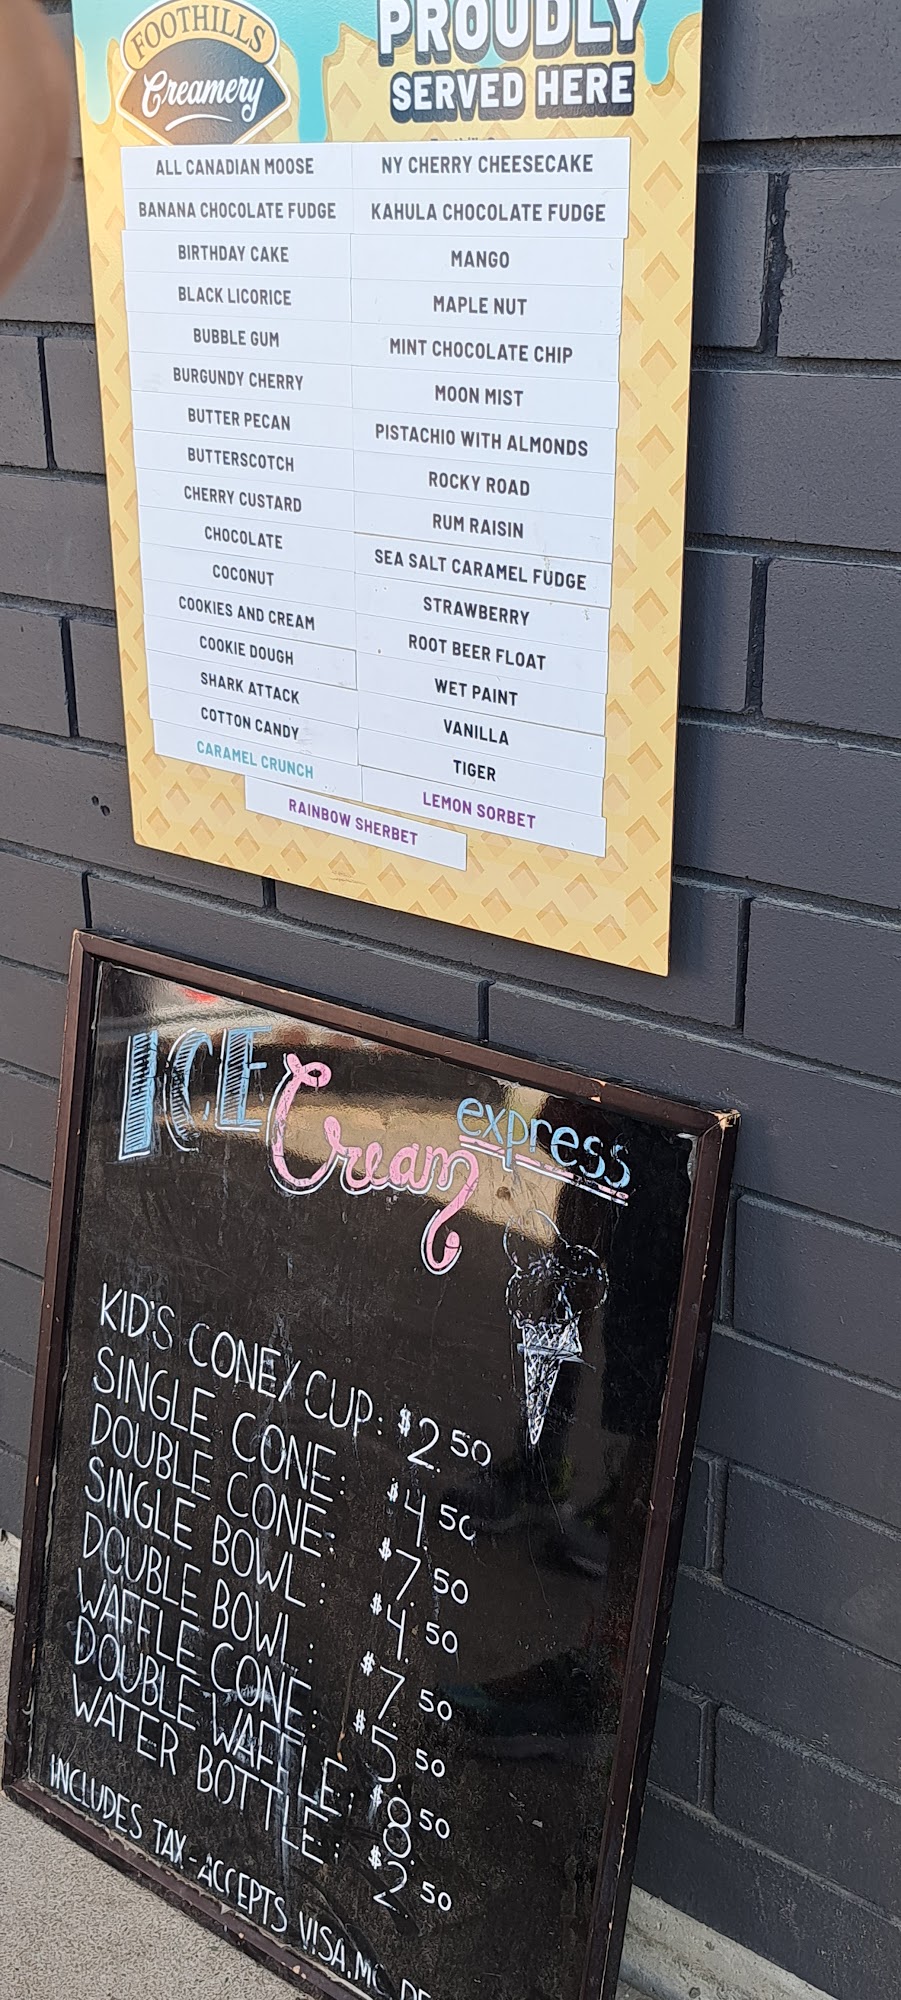 FOOTHILLS
Creamery
PROUDLY
SERVED HERE
ALL CANADIAN MOOSE
BANANA CHOCOLATE FUDGE
BIRTHDAY CAKE
BLACK LICORICE
BUBBLE GUM
BURGUNDY CHERRY
BUTTER PECAN
BUTTERSCOTCH
CHERRY CUSTARD
CHOCOLATE
COCONUT
COOKIES AND CREAM
COOKIE DOUGH
SHARK ATTACK
COTTON CANDY
CARAMEL CRUNCH
NY CHERRY CHEESECAKE
KAHULA CHOCOLATE FUDGE
MANGO
MAPLE NUT
MINT CHOCOLATE CHIP
MOON MIST
PISTACHIO WITH ALMONDS
ROCKY ROAD
RUM RAISIN
SEA SALT CARAMEL FUDGE
STRAWBERRY
ROOT BEER FLOAT
WET PAINT
VANILLA
TIGER
LEMON SORBET
RAINBOW SHERBET
ICE Cream express
KID'S CONE/CUP: $2.50
SINGLE CONE: $4.50
DOUBLE CONE: $7.50
SINGLE BOWL: $4.50
DOUBLE BOWL: $7.50
WAFFLE CONE: $5.50
DOUBLE WAFFLE: $8.50
WATER BOTTLE: $2.50
INCLUDES TAX - ACCEPTS VISA, MC